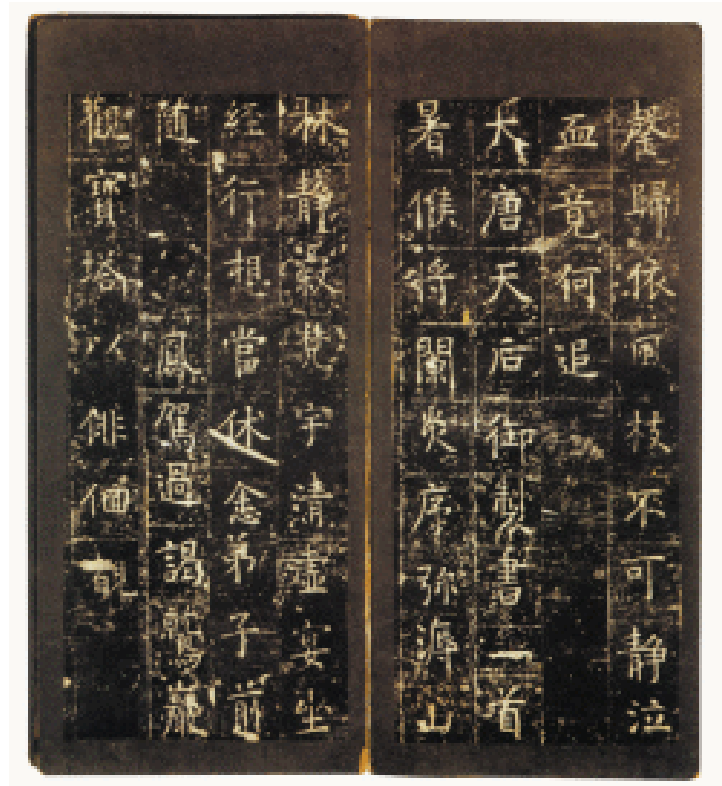 罄歸依風枝不可静泣
血竟何追
大唐天后御製書一首
暑候将闌炎序弥溽山
林靜寂梵宇清虛宴坐
經行想當休念弟子前
随 鳳駕過謁鷲巖
觀寶塔以俳佪